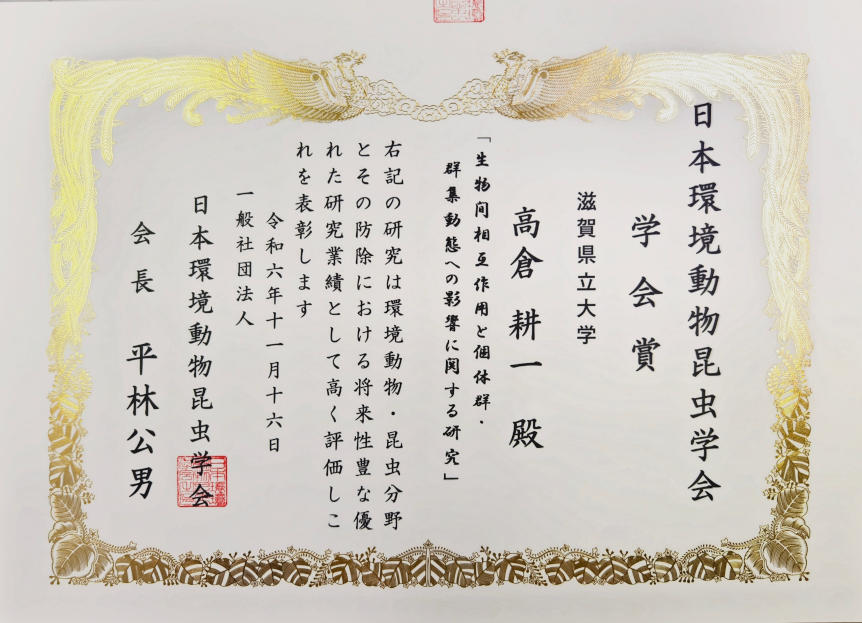 日本環境動物昆虫学会
学会賞
滋賀県立大学
高倉耕一 殿
「生物間相互作用と個体群・
群集動態への影響に関する研究」
右記の研究は環境動物・昆虫分野
とその防除における将来性豊な優
れた研究業績として高く評価しこ
れを表彰します
令和六年十一月十六日
一般社団法人
日本環境動物昆虫学会
会長 平林公男